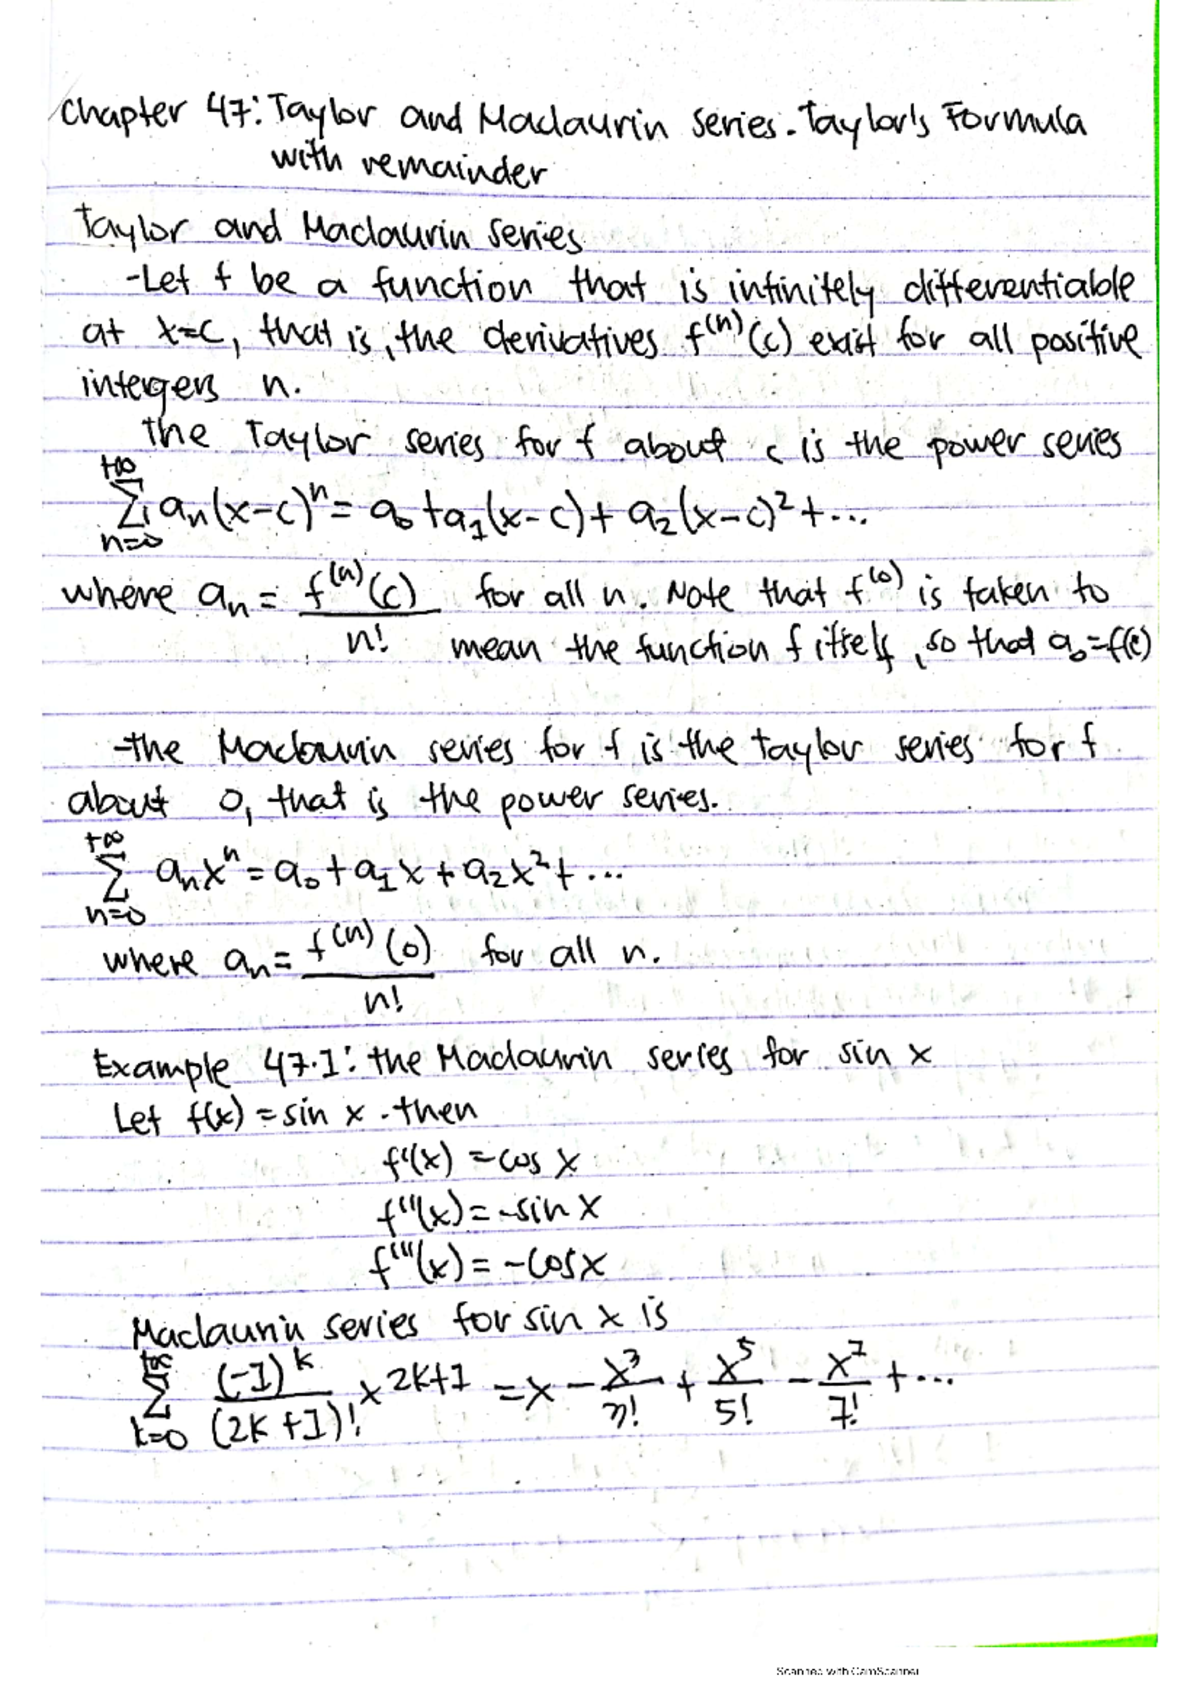 Chapter 47: Taylor and Maclaurin series. Taylor's Formula
with remainder
Taylor and Maclaurin series
-Let f be a function that is infinitely differentiable
at x=c, that is, the derivatives f^(n)(c) exist for all positive
intergers n.
the Taylor series for f about c is the power series
+∞
∑ aₙ(x-c)ⁿ = a₀ + a₁(x-c) + a₂(x-c)² + ...
n=0
where aₙ = f^(n)(c) for all n. Note that f^(0) is taken to
n! mean the function f itself, so that a₀=f(c)
-the Maclaurin series for f is the taylor series for f
about 0, that is the power series.
+∞
∑ aₙxⁿ = a₀ + a₁x + a₂x² + ...
n=0
where aₙ = f^(n)(0) for all n.
n!
Example 47.1: the Maclaurin series for sin x
Let f(x) = sin x. then
f'(x) = cos x
f''(x) = -sin x
f'''(x) = -cos x
Maclaurin series for sin x is
+∞
∑ (-1)^k / (2k+1)! x^2k+1 = x - x³/3! + x⁵/5! - x⁷/7! + ...
k=0
Scanned with CamScanner